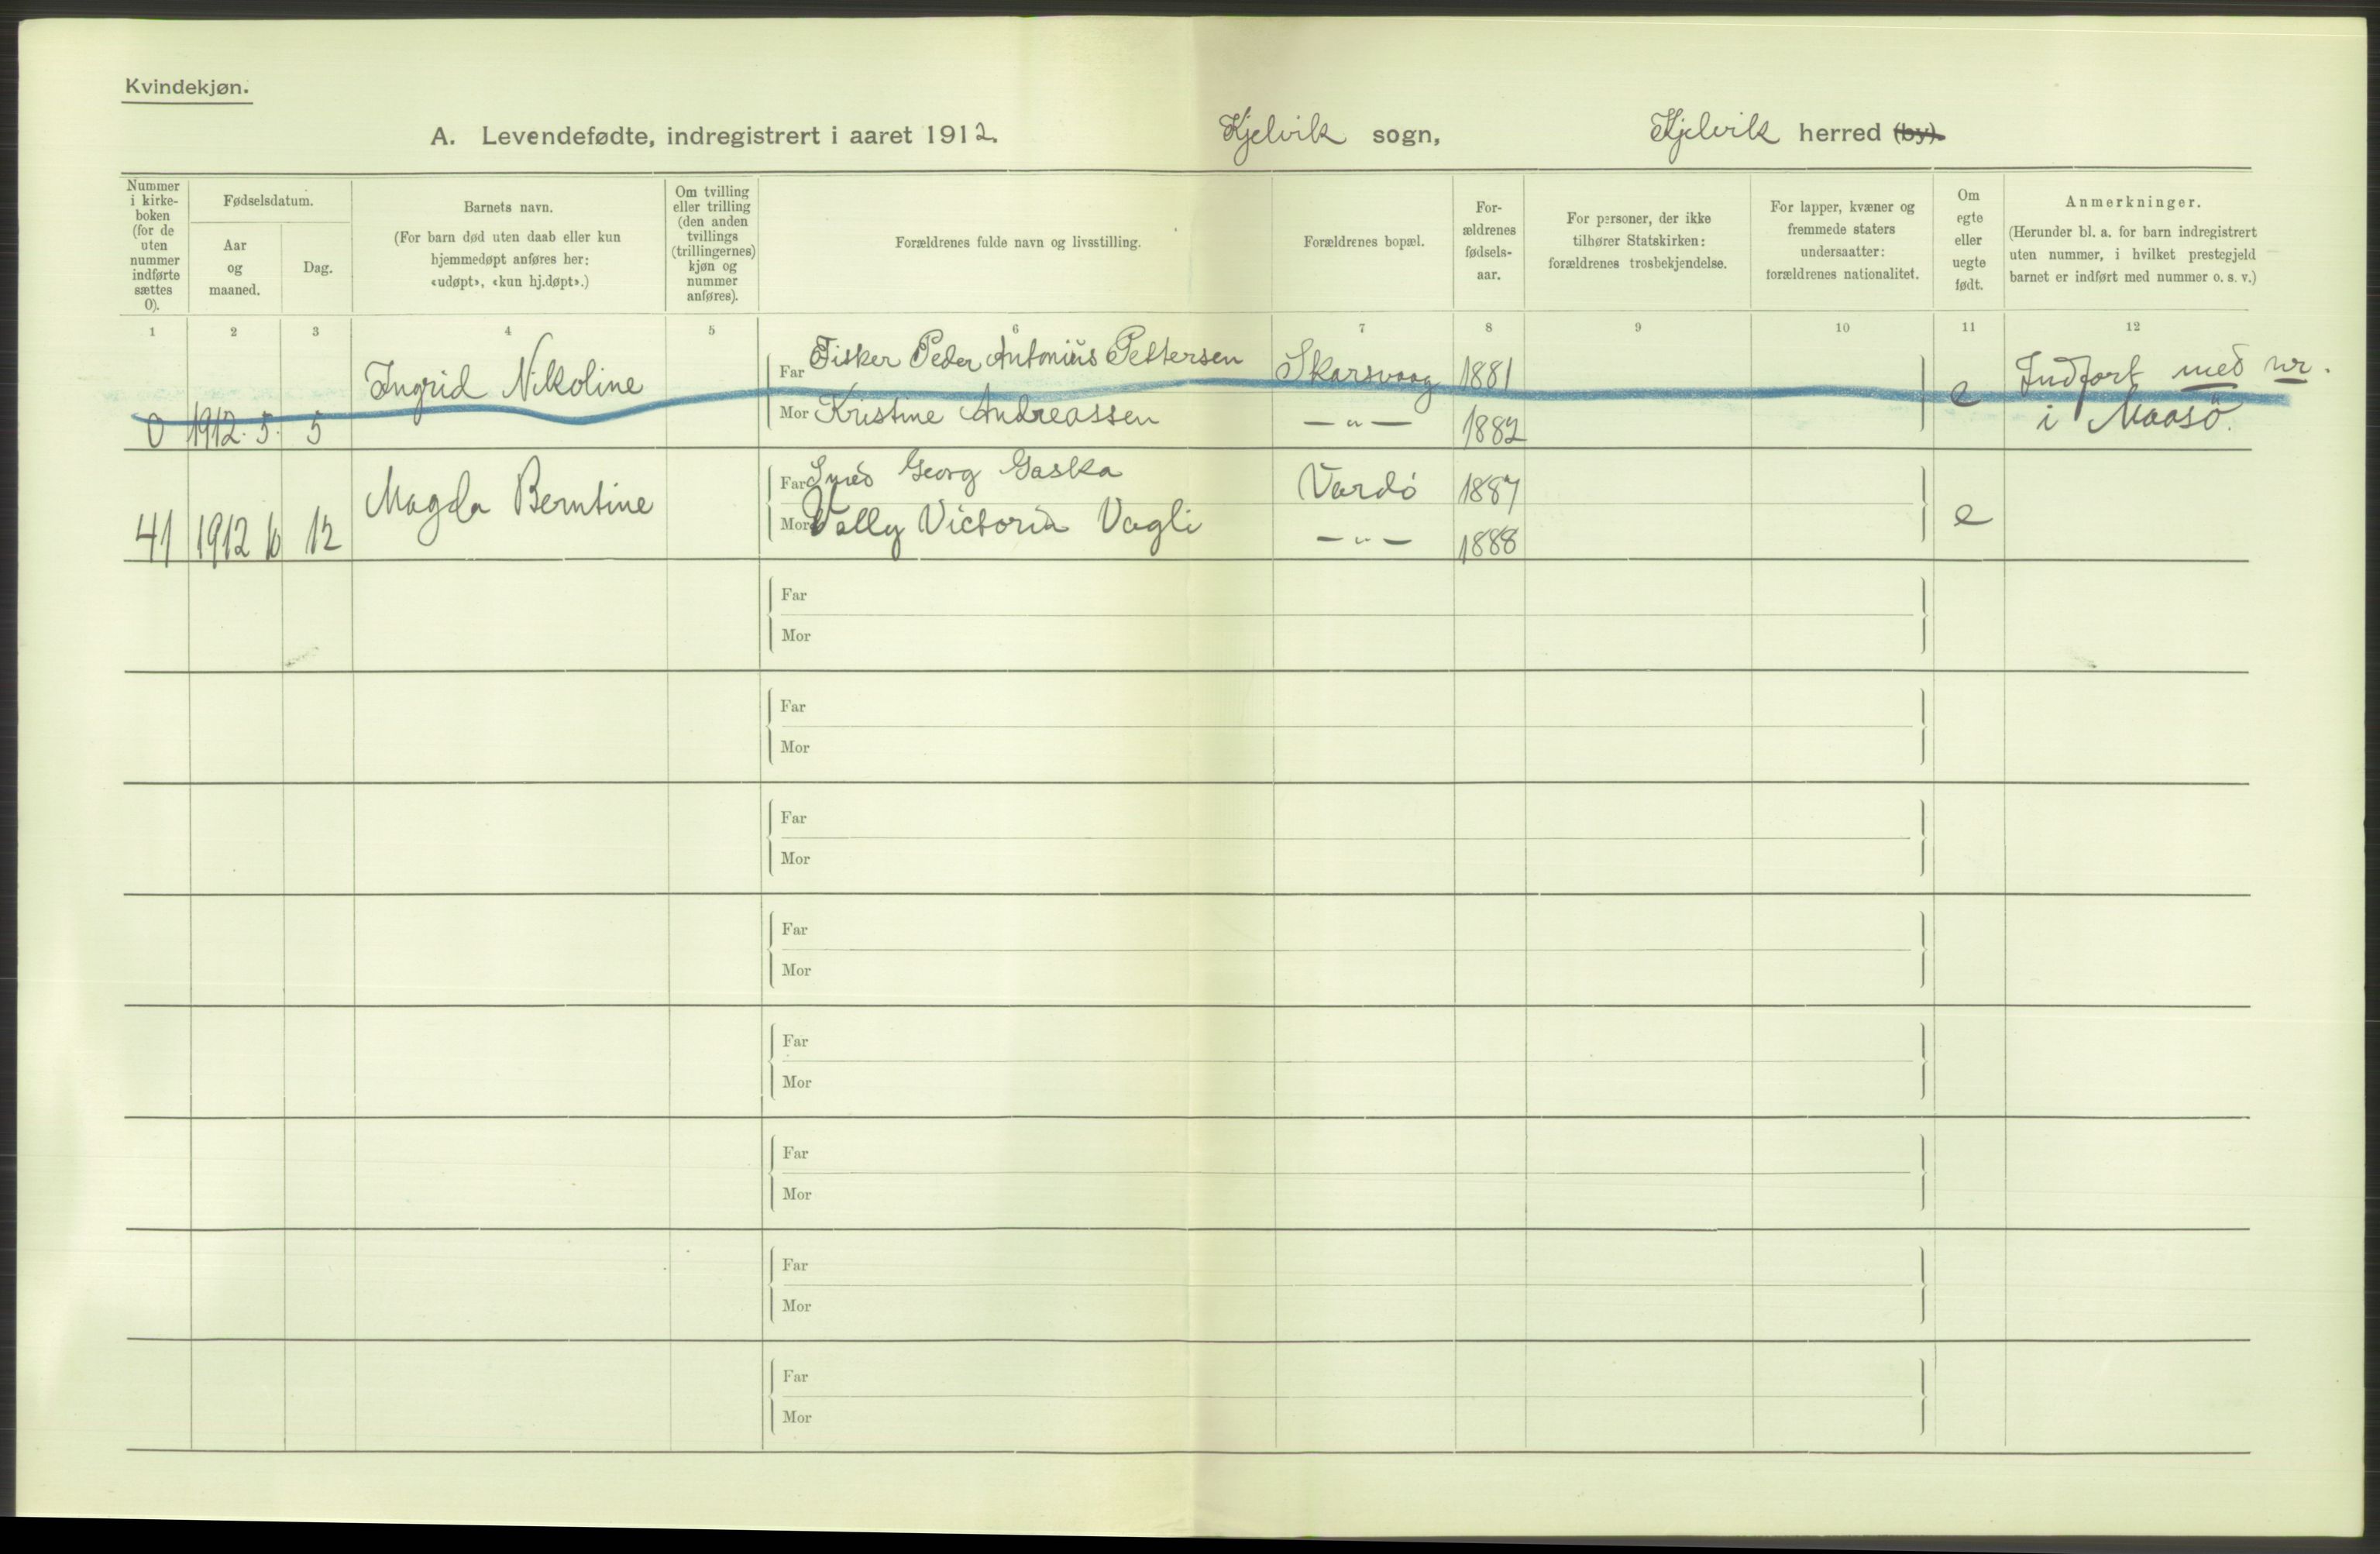 Kvindekjøn.
A. Levendefødte, indregistrert i aaret 1912. Kjelvik sogn, Kjelvik herred (by).
Nummer i kirke-boken (for de uten nummer indførte sættes 0).
Fødselsdatum.
Aar og maaned.
Dag.
Barnets navn.
(For barn død uten daab eller kun hjemmedøpt anføres her: «udøpt», «kun hj.døpt».)
Om tvilling eller trilling (den anden tvillings (trillingernes) kjøn og nummer anføres).
Forældrenes fulde navn og livsstilling.
Forældrenes bopæl.
For-ældrenes fødsels-aar.
For personer, der ikke tilhører Statskirken: forældrenes trosbekjendelse.
For lapper, kvæner og fremmede staters undersaatter: forældrenes nationalitet.
Om egte eller uegte født.
Anmerkninger.
(Herunder bl. a. for barn indregistrert uten nummer, i hvilket prestegjeld barnet er indført med nummer o. s. v.)
1 2 3 4 5 6 7 8 9 10 11 12
Far Fisker Peder Antonius Pettersen Skarsvaag 1881 Indført med nr.
Ingrid Nikoline e
0 1912. 5. 5 Mor Kristine Andreassen — „ — 1882 i Maasö.
Far Georg Gaska Vardö 1887
Magda Berntine e
41 1912 12 Mor Vally Victoria Vagli — „ — 1888
Far
Mor
Far
Mor
Far
Mor
Far
Mor
Far
Mor
Far
Mor
Far
Mor
Far
Mor